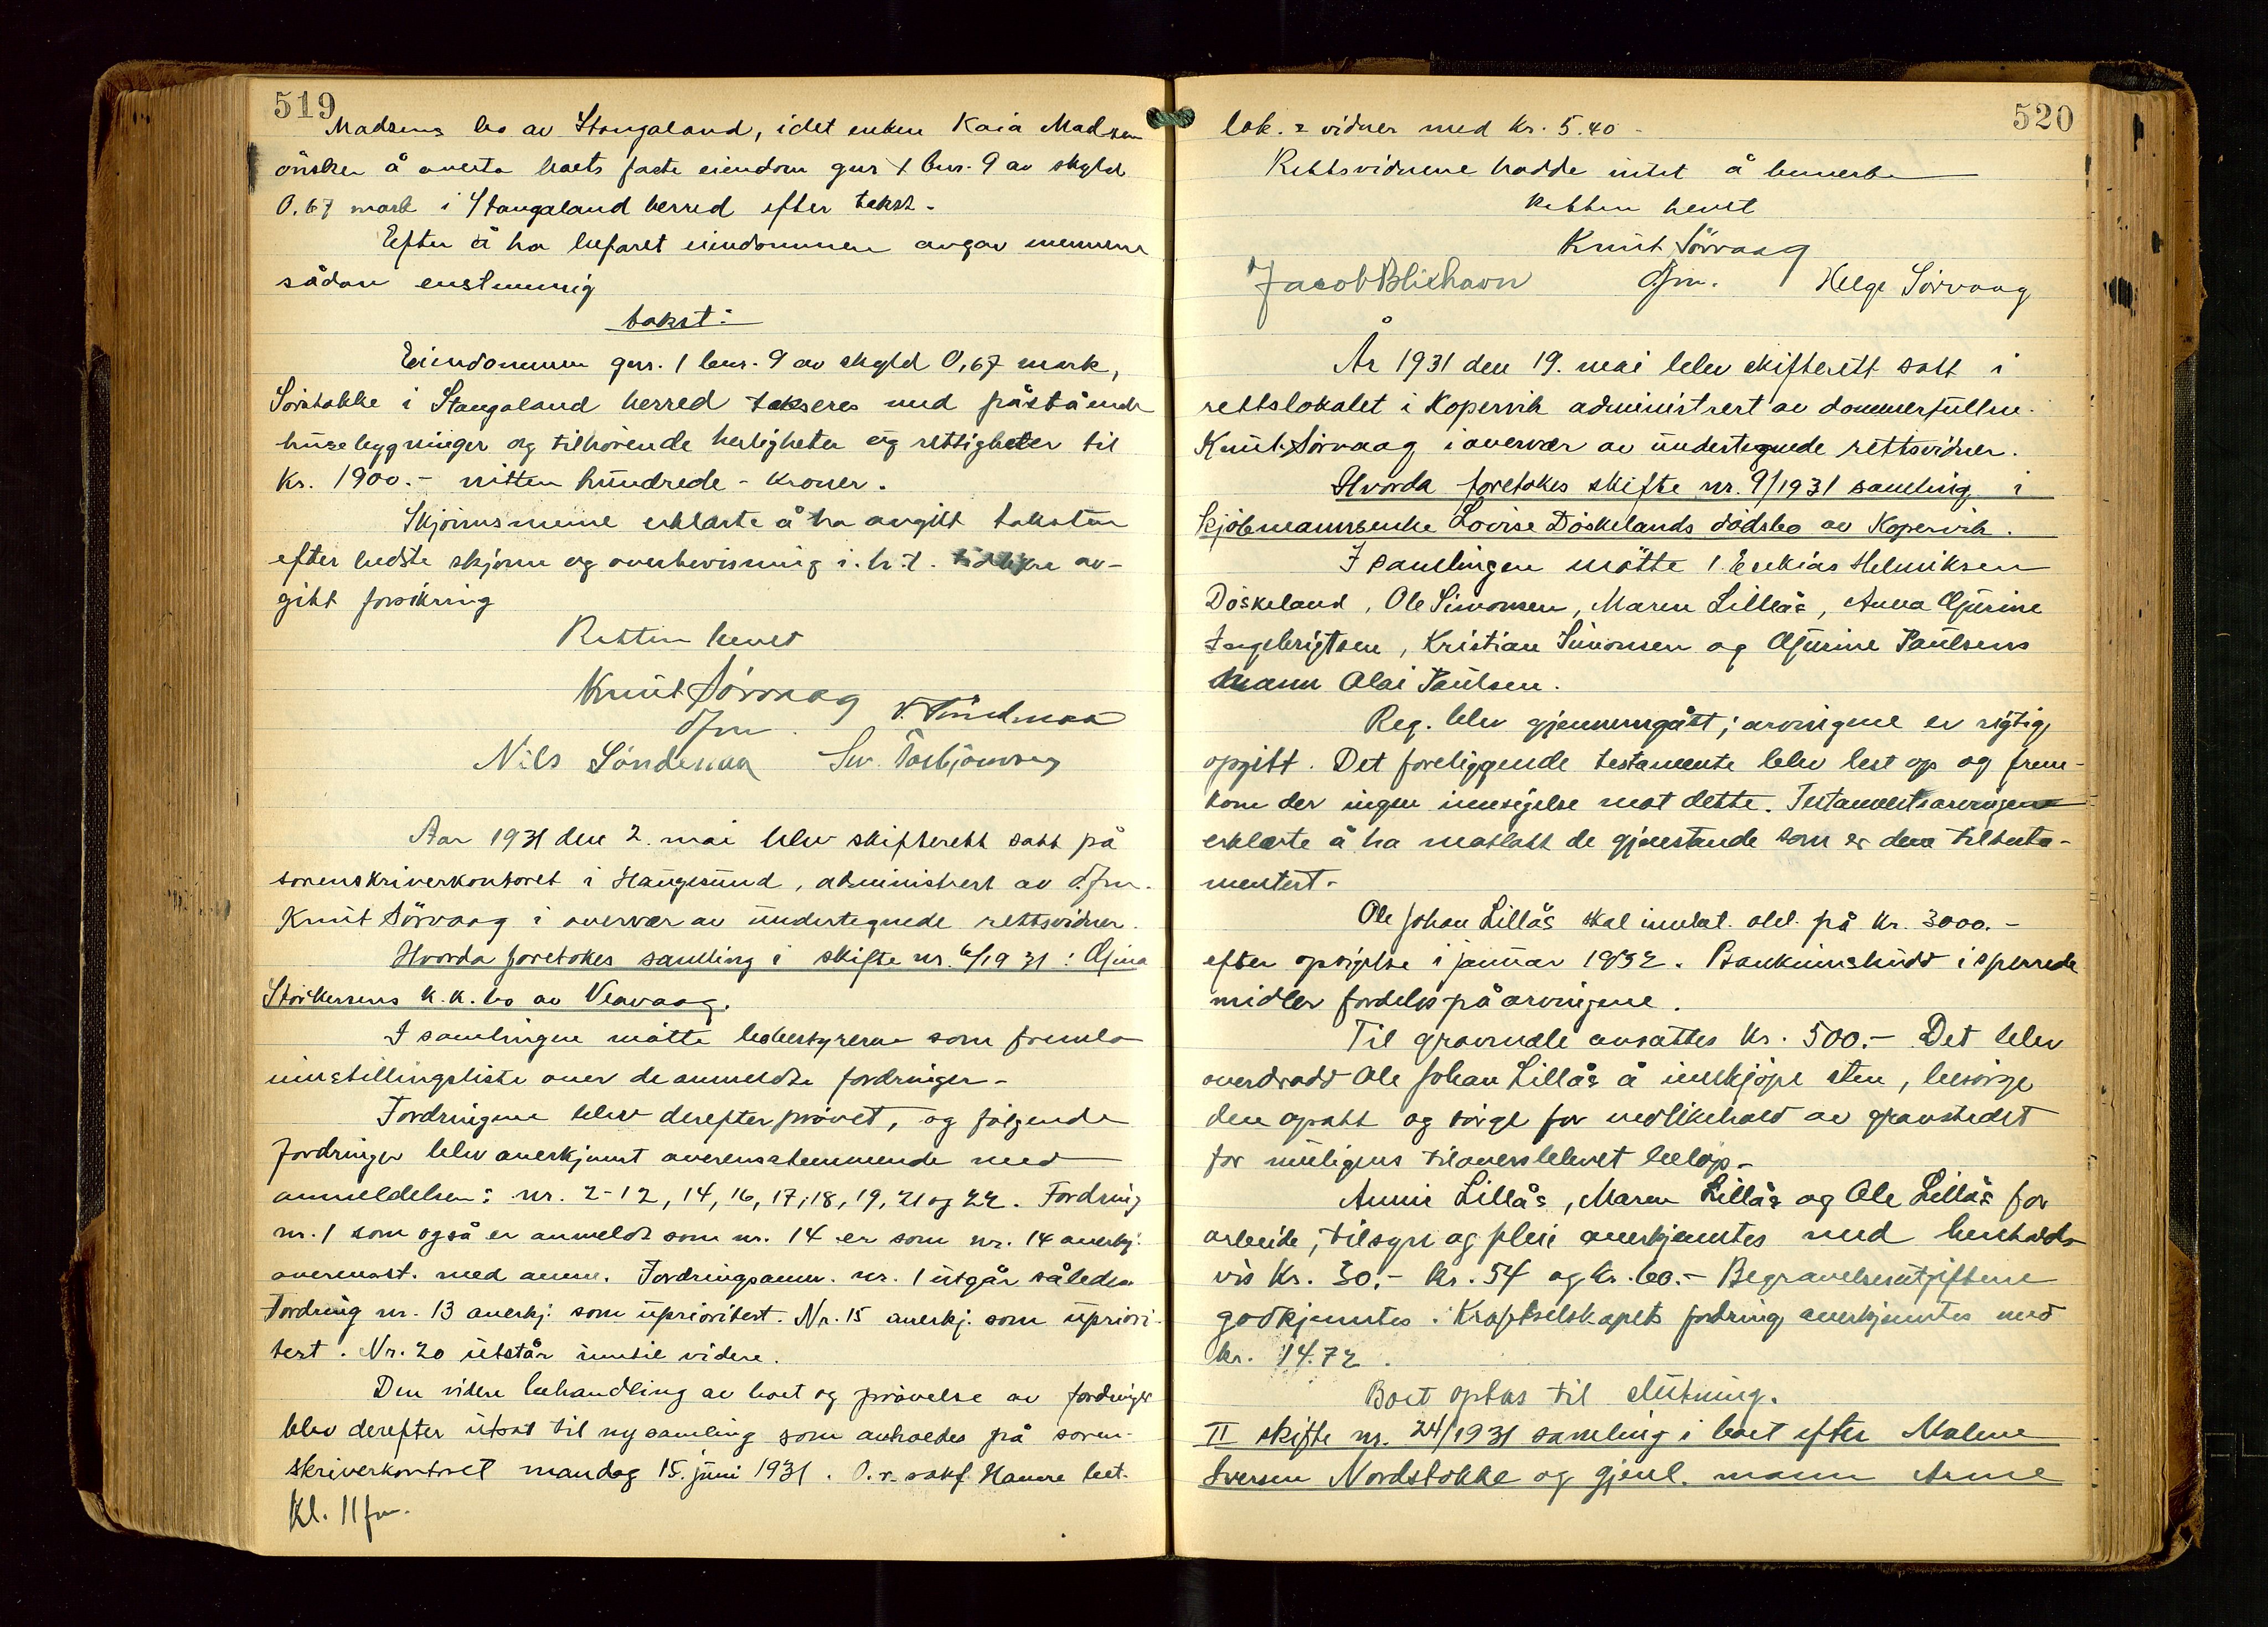 519
Madsens bo av Stangaland, idet enken Kaia Madsen
ønsker å overta boets faste eiendom gnr 1 bnr. 9 av skyld
0,67 mark i Stangaland herred efter takst.
Efter å ha befaret eiendommen avgav mennene
sådan enstemmig
takst:
Eiendommen gnr. 1 bnr. 9 av skyld 0,67 mark,
Sørstokke i Stangaland herred takseres med påstående
husebygninger og tilhørende herligheter og rettigheter til
kr. 1900.- nitten hundrede - kroner.
Skjønnsmenne erklærte å ha avgitt taksten
efter bedste skjønn og overbevisning i. h. t. tidligere av-
gitt forsikring
Retten hevet
Knut Sørvaag
dfm.
Nils Søndenaa Sv. Torbjørnsen
Aar 1931 den 2. mai blev skifterett satt på
sorenskriverkontoret i Haugesund, administrert av d.fm.
Knut Sørvaag i overvær av undertegnede rettsvidner.
Hvorda foretokes samling i skifte nr. 6/1931: Gina
Størkersens k.k. bo av Veavaag.
I samlingen møtte bobestyreren som fremla
innstillingsliste over de anmeldte fordringer.
Fordringene blev derefter prøvet, og følgende
fordringer blev anerkjent overensstemmende med
anmeldelsen: nr. 2-12, 14, 16, 17, 18, 19, 21 og 22. Fordring
nr. 1 som også er anmeldt som nr. 14 er som nr. 14 anerkj.
overenst. med anm. Fordringsanm. nr. 1 utgår således
Fordring nr. 13 anerkj. som uprioritert. Nr. 15 anerkj. som upriori-
tert. Nr. 20 utstår inntil videre.
Den videre behandling av boet og prøvelse av fordringer
blev derefter utsat til ny samling som anholdes på soren-
skriverkontoret mandag 15. juni 1931. O.r. sakf. Hamre bet.
Kl. 11 fm.
520
lok. 2 vidner med kr. 5.40 -
Rettsvidnene hadde intet å bemerke
Retten hevet
Knut Sørvaag
Jacob Blikhavn dfm. Helge Sørvaag
År 1931 den 19. mai blev skifterett satt i
rettslokalet i Kopervik administrert av dommerfullm.
Knut Sørvaag i overvær av undertegnede rettsvidner.
Hvorda foretokes skifte nr. 9/1931 samling i
kjøbmannsenke Lovise Døskelands dødsbo av Kopervik.
I samlingen møtte 1. Esekias Helmiksen
Døskeland, Ole Simonsen, Maren Lillås, Anna Gjurine
Ingebrigtsen, Kristian Simonsen og Gjurine Paulsens
Mann Olai Paulsen.
Reg. blev gjennemgått; arvingene er rigtig
opgitt. Det foreliggende testamente blev lest op og frem-
kom der ingen innsigelse mot dette. Testamentsarvingene
erklærte å ha mottatt de gjenstande som er dem tiltesta-
mentert.
Ole Johan Lillås skal innbet. obl. på kr. 3000.-
efter opsigelse i januar 1932. Bankinnskudd i sperrede
midler fordeles på arvingene.
Til gravmæle avsattes kr. 500.- Det blev
overdradd Ole Johan Lillås å innkjøpe sten, besørge
den opsatt og sørge for vedlikehold av gravstedet
for muligens tiloversblevet beløp.
Annie Lillås, Maren Lillås og Ole Lillås for
arbeide, tilsyn og pleie anerkjentes med henholds-
vis kr. 30.- kr. 54 og kr. 60.- Begravelsesutgiftene
godkjentes. Kraftselskapets fordring anerkjentes med
kr. 14.72.
Boet optas til slutning.
II skifte nr. 24/1931 samling i boet efter Malene
Iversen Nordstokke og gjenl. mann Arne